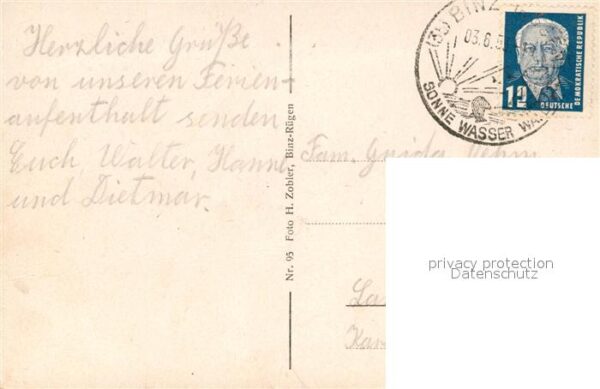 Herzliche Grüße
von unseren Ferien-
aufenthalt senden
Euch Walter, Hanne
und Dietmar.
Nr. 95 Foto H. Zobler, Binz-Rügen
(3a) BINZ
03.6.5
SONNE WASSER WA
12
DEUTSCHE
DEMOKRATISCHE REPUBLIK
Fam. Guido
privacy protection
Datenschutz